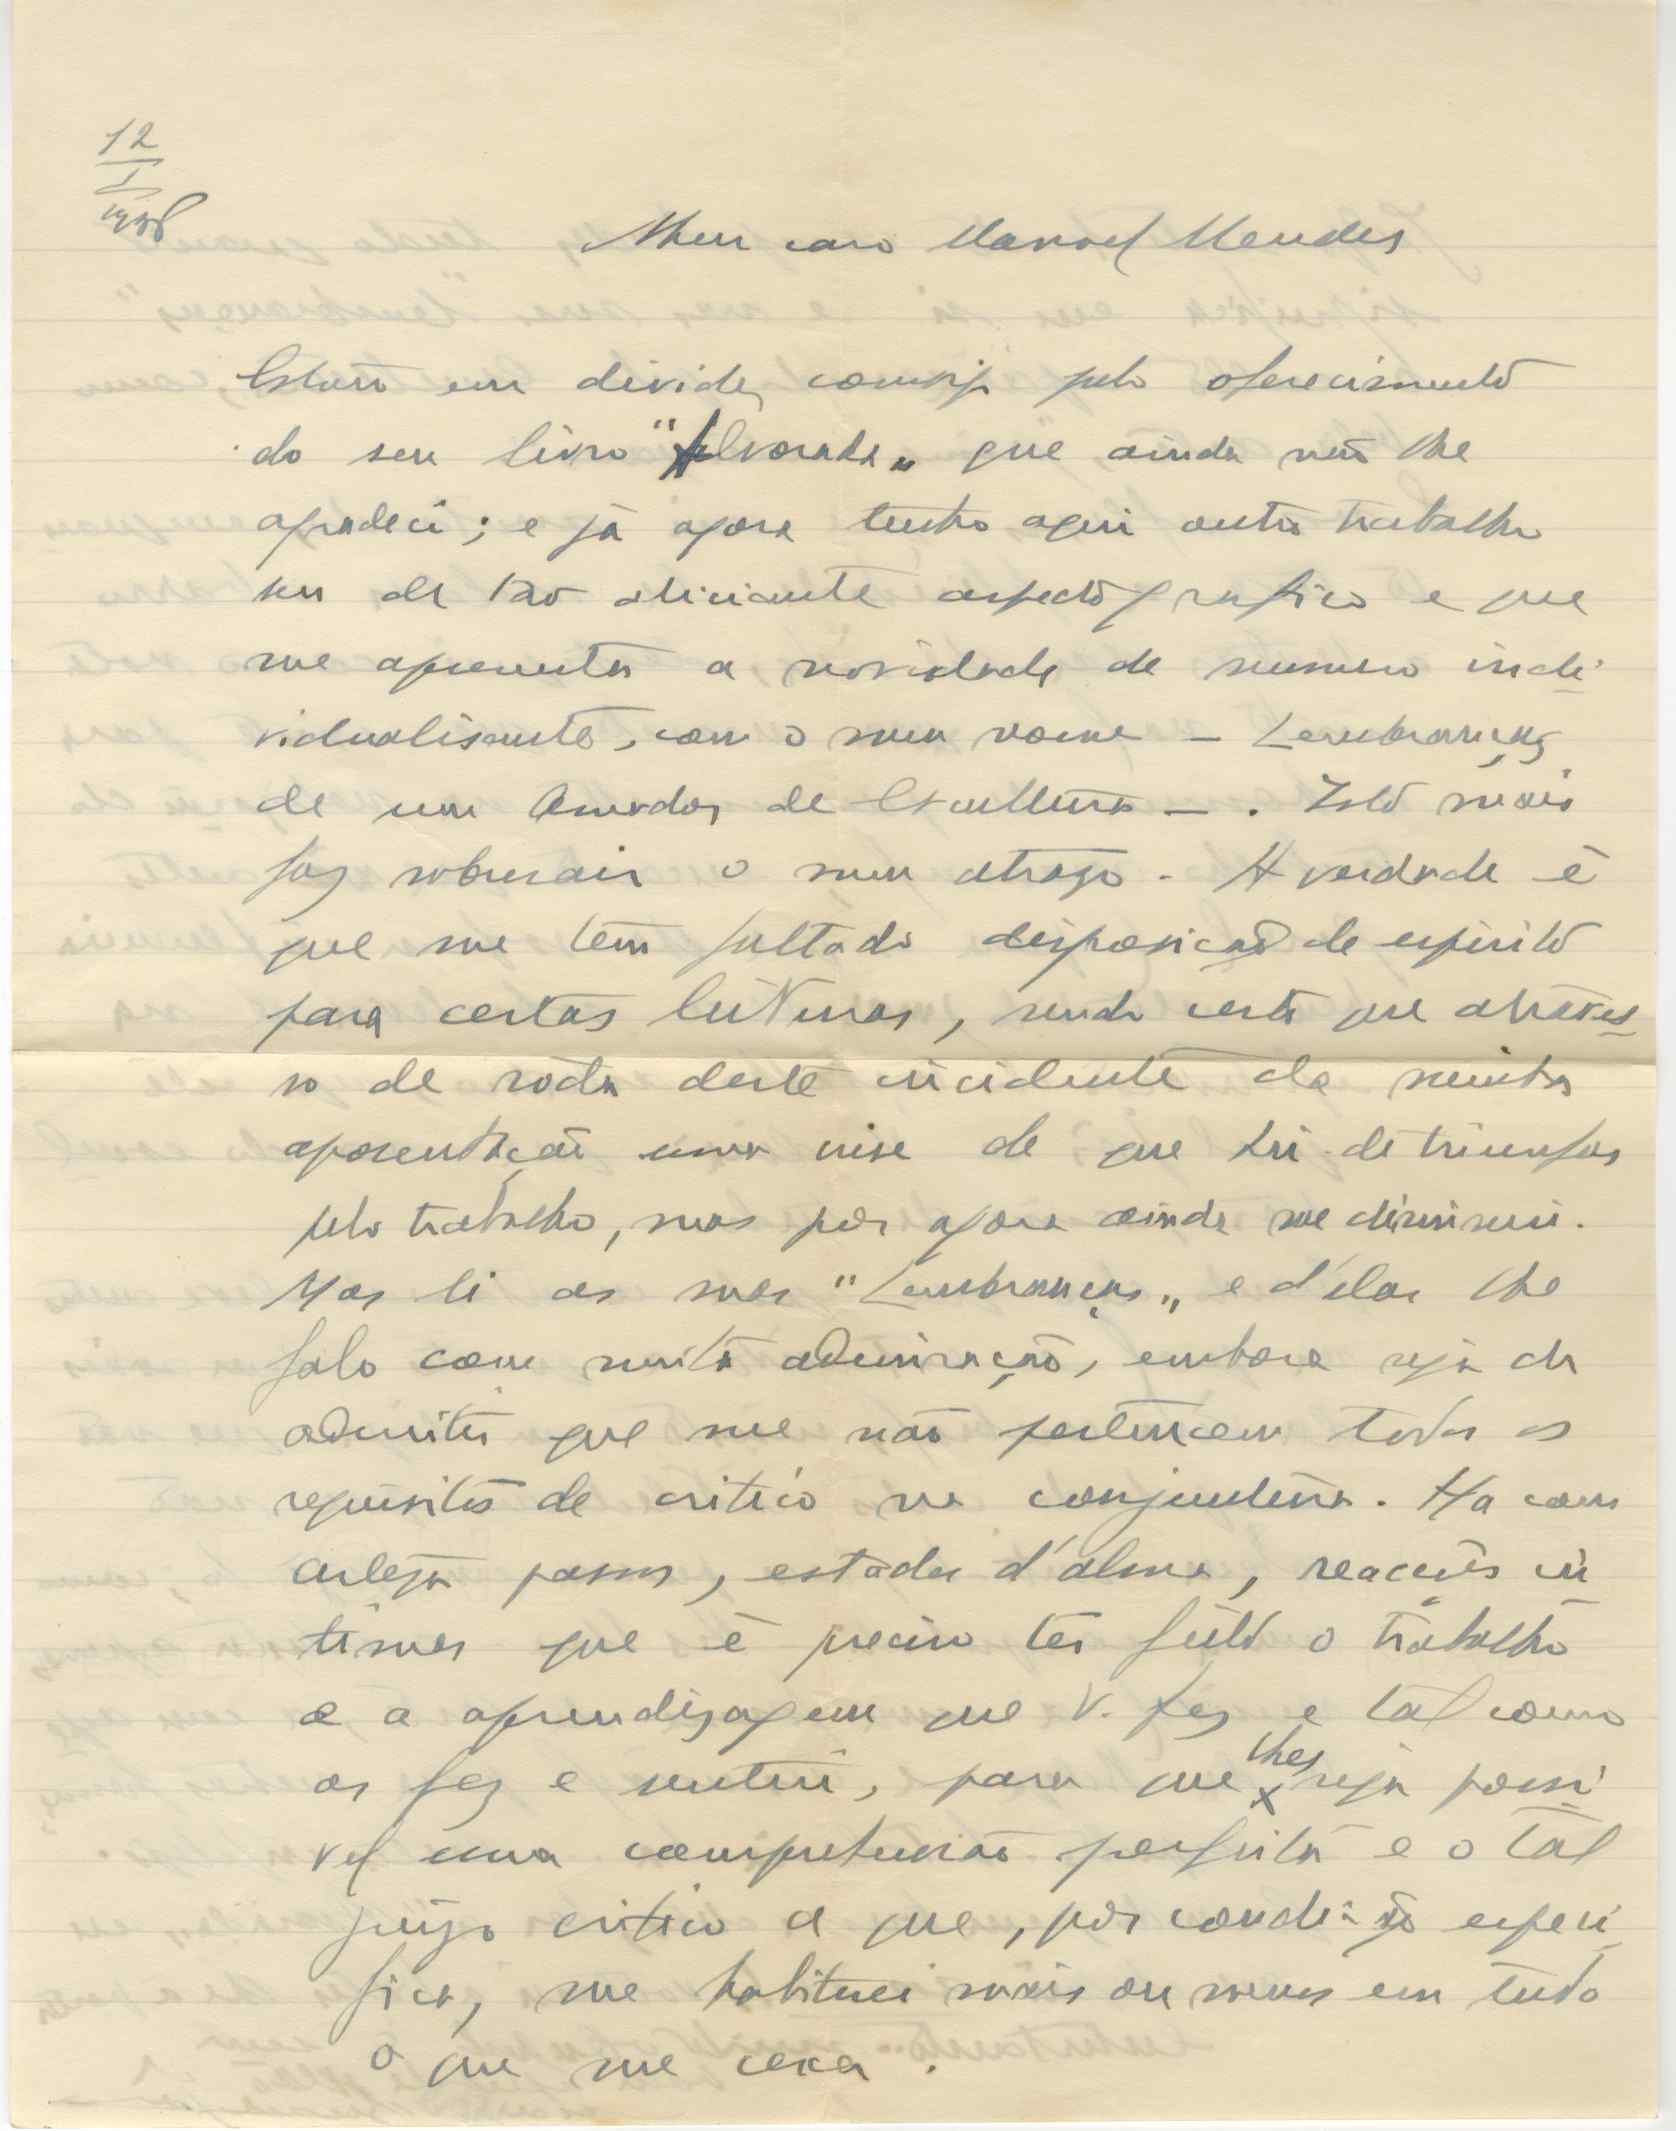 12
I
Meu caro Manoel Mendes
Estava em divida comsigo pelo oferecimento
do seu livro "Alvorada„ que ainda não lhe
agradeci; e já agora tenho aqui outro trabalho
seu de tão aliciante aspecto grafico e que
me apresenta a novidade de numero indi-
vidualisante, com o meu nome – Lembranças
de um Amador de Escultura – . Isto mais
faz sobresair o meu atrazo. A verdade é
que me tem faltado disposição de espirito
para certas leituras, sendo certo que atraves-
so de roda deste incidente da minha
aposentação uma crise de que hei-de triunfar
pelo trabalho, mas por agora ainda me diminui.
Mas li as suas "Lembranças„ e d'elas lhe
falo com muita admiração, embora seja de
admitir que me não pertencem todos os
requisitos de critico na conjuntura. Ha com
certeza passos, estados d'alma, reacções in
timas que é preciso ter feito o trabalho
e a aprendizagem que V. fez e tal como
os fez e sentiu, para que lhes seja possi-
vel uma comprehensão perfeita e o tal
juizo critico a que, por condição especi-
fica, me habituei mais ou menos em tudo
o que me cerca.